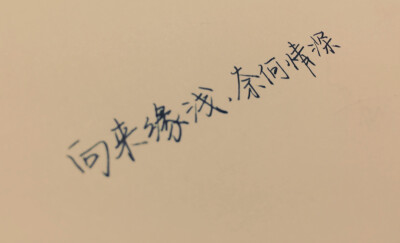 向来缘浅.奈何情深